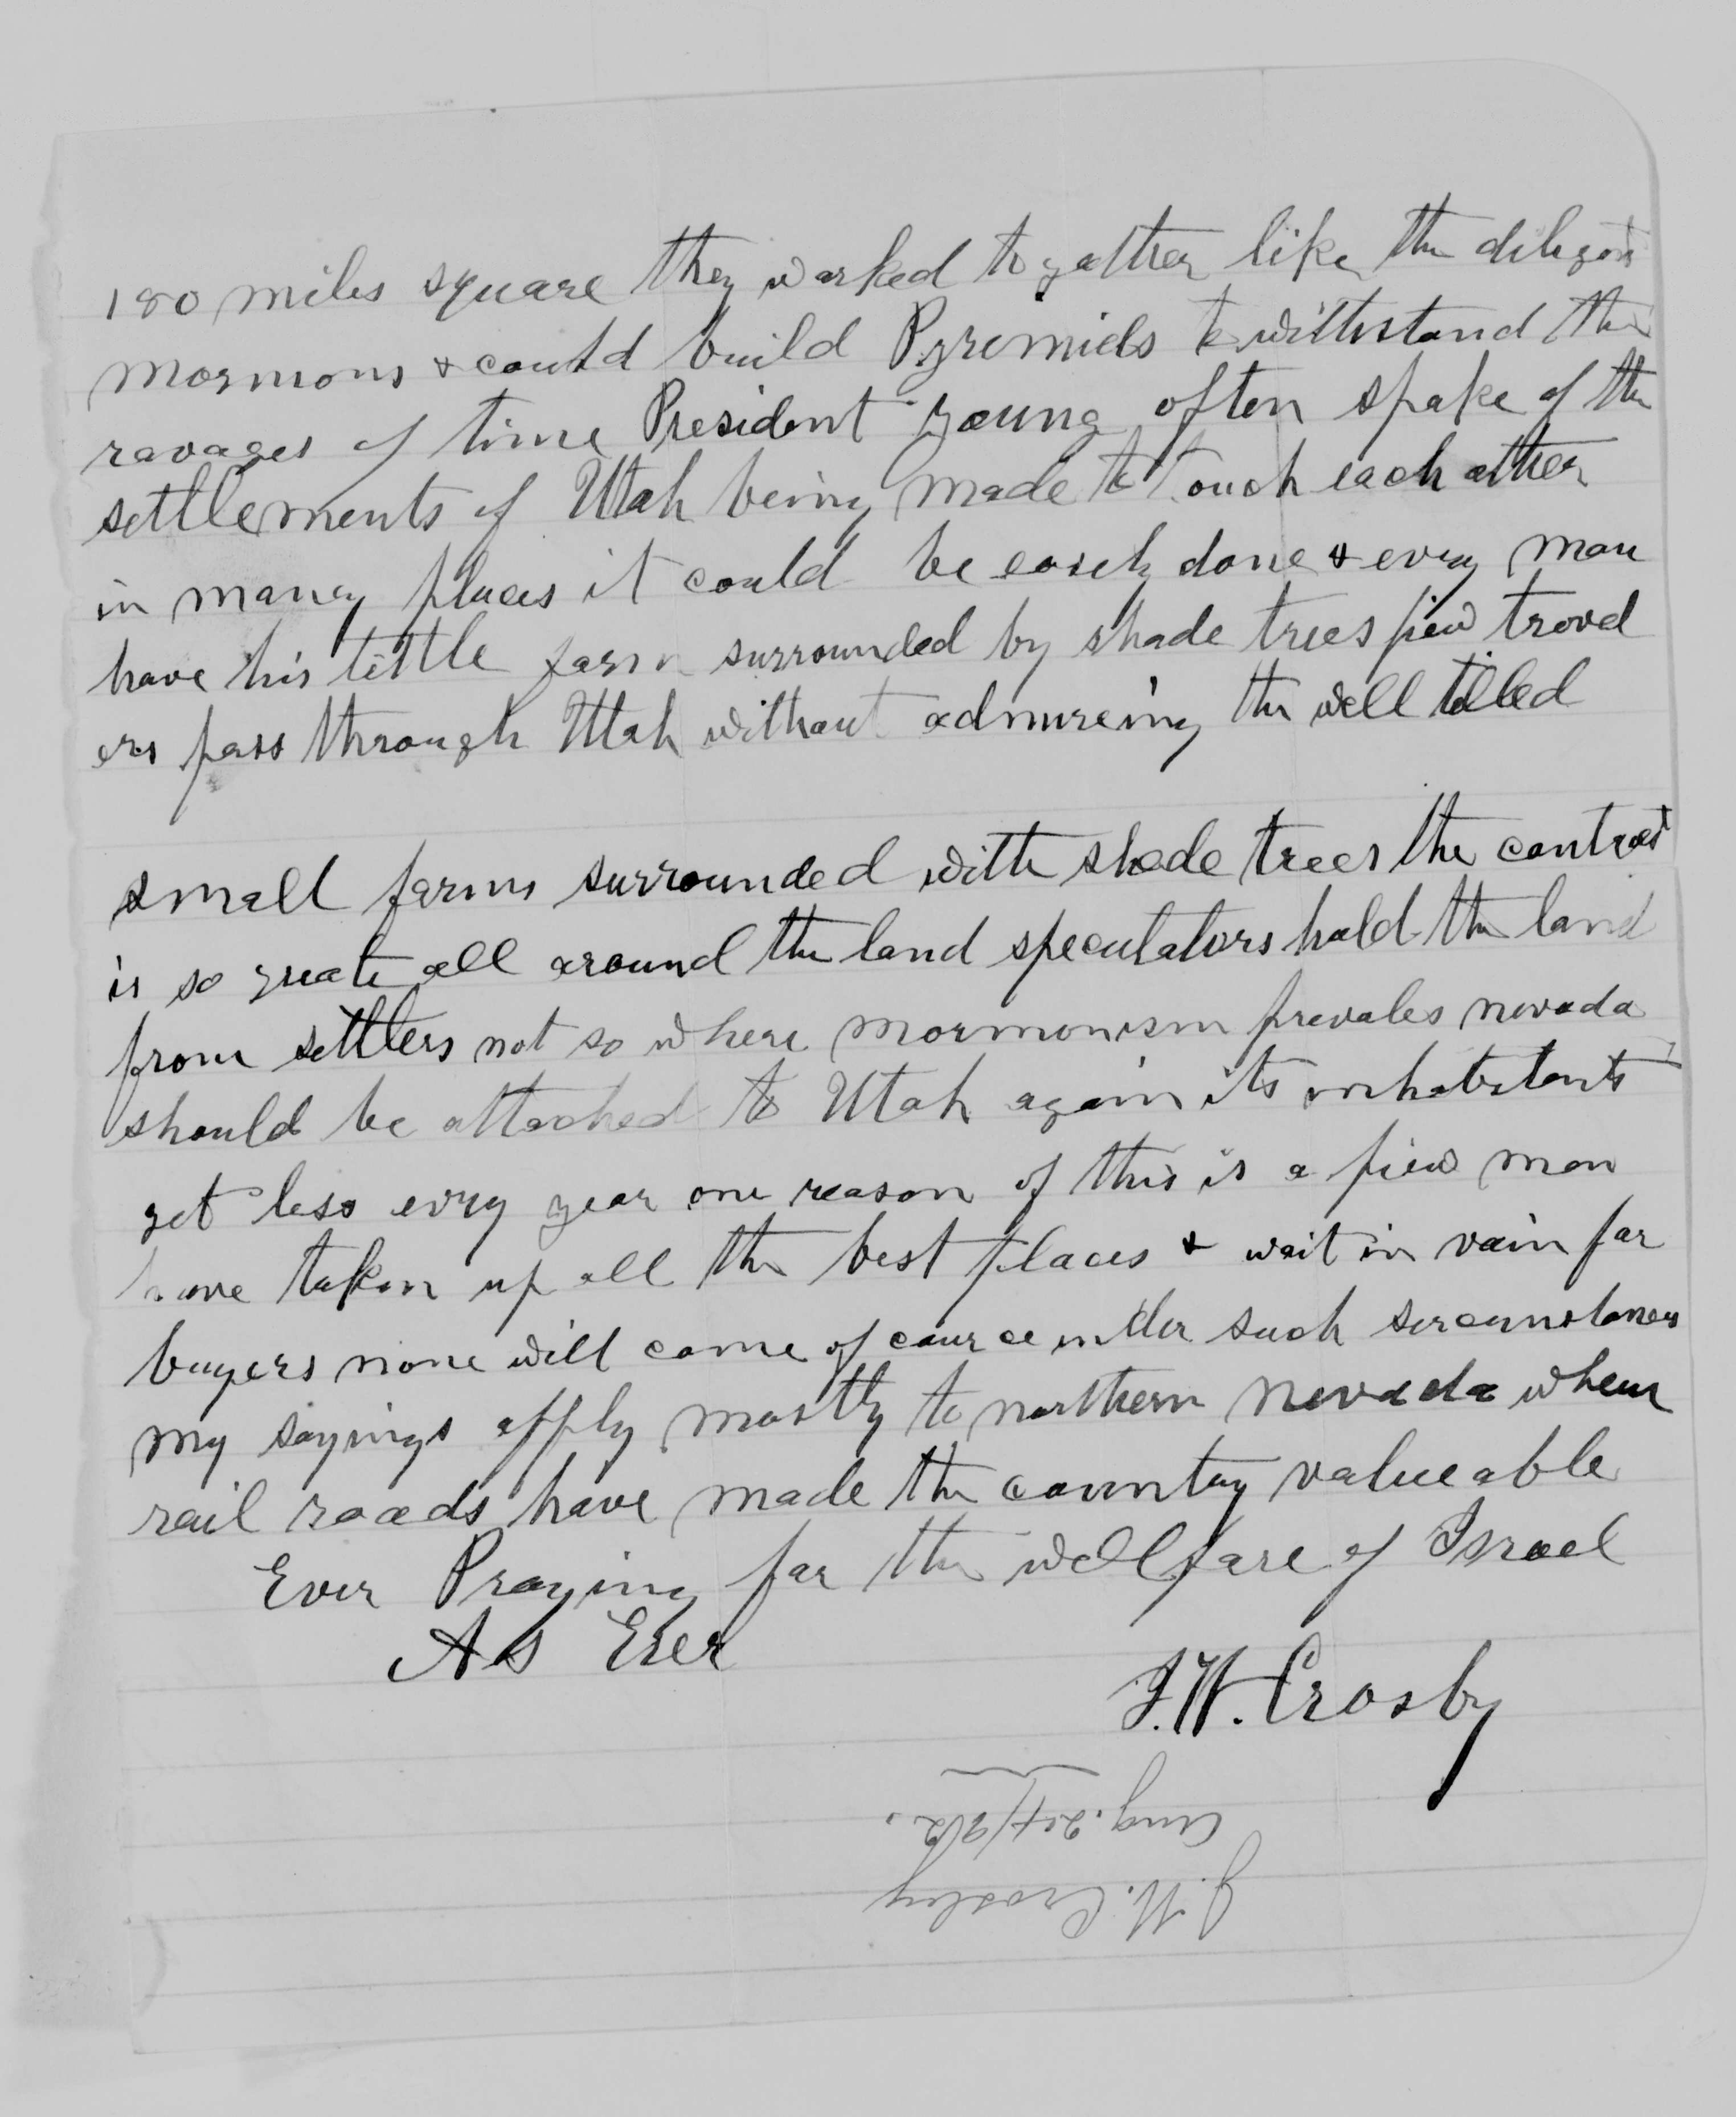 180 miles square they worked togather like the diligent
mormons & could build Pyremids to withstand the
ravages of time President young often spake of the
settlements of Utah being made to touch each other
in many places it could be easely done & evry man
have his little farm surrounded by shade trees fiew travel
ers pass through Utah without admireing the well tilled
small farms surrounded with shade trees the contrast
is so greate all around the land speculators hold the land
from settlers not so where mormonism prevales nevada
should be attached to Utah again its inhabitants
get less evry year one reason of this is a fiew men
have taken up all the best places & wait in vain for
buyers none will come of cource under such sircumstances
my sayings apply mostly to northern Nevada where
rail roads have made the country valueable
Ever Praying for the wellfare of Israel
As Ever
J.W. Crosby
J. W. Crosby
Aug. 24/92.